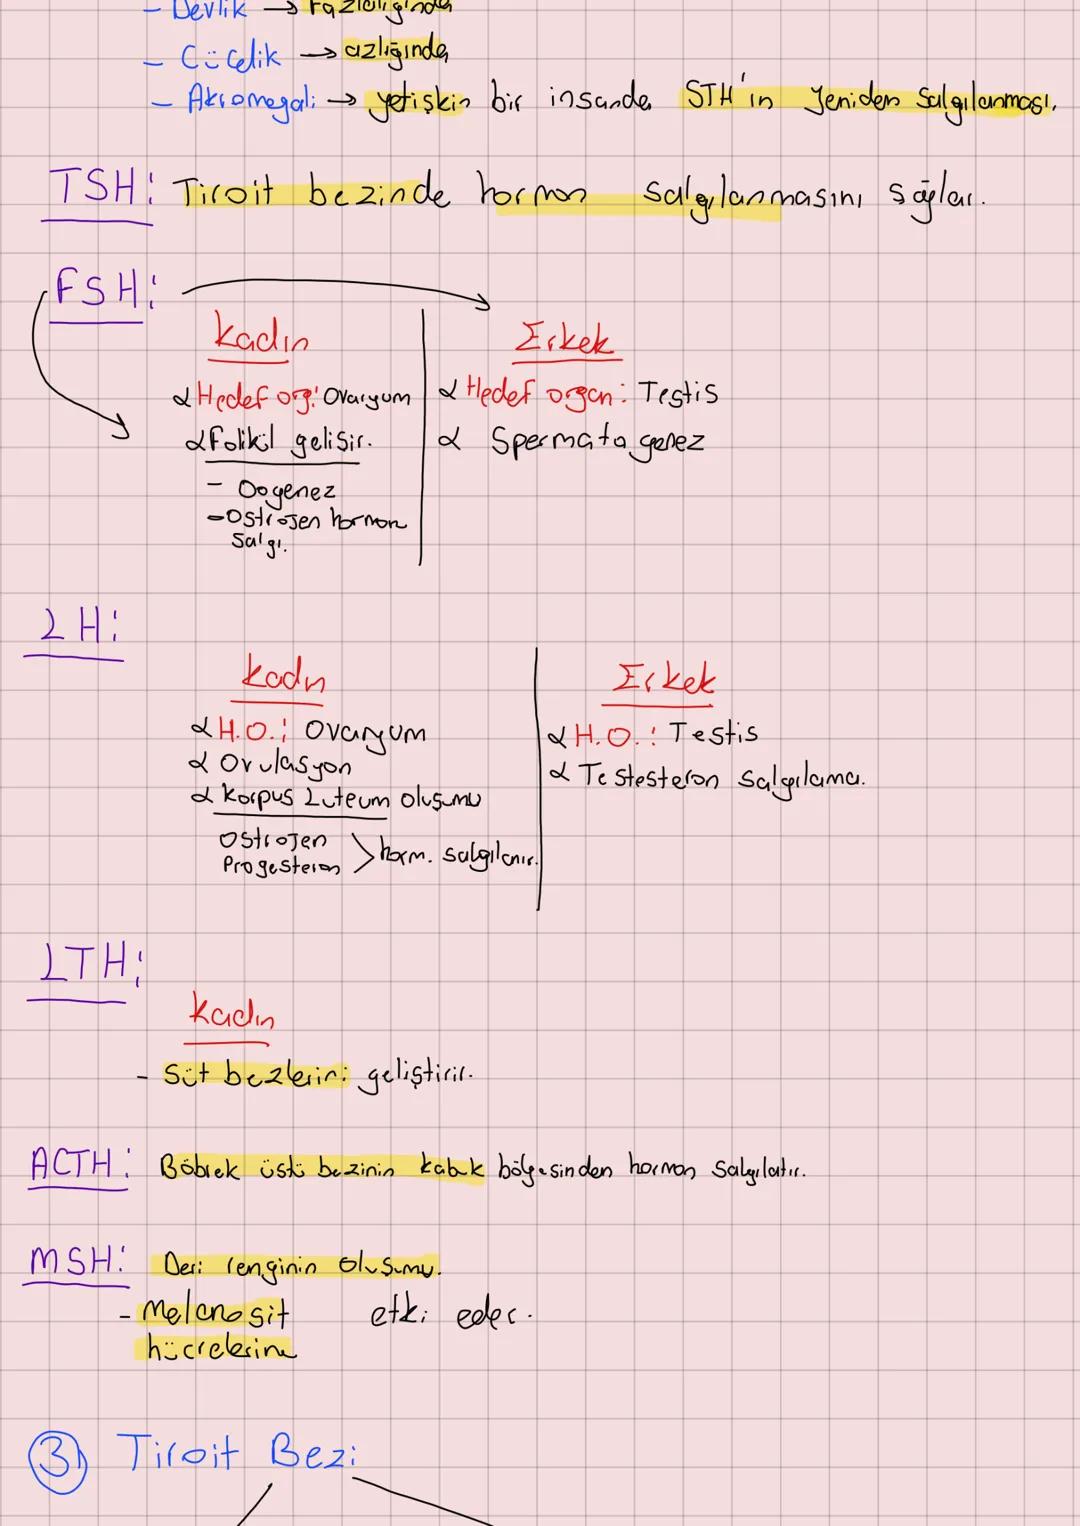 - Devlik → Fazlalığında
- Cücelik → azlığında
- Akromegali → yetişkin bir insanda STH'ın yeniden salgılanması.
TSH: Tiroit bezinde hormon salgılanmasını sağlar.
FSH:
Kadın
Erkek
Hedef org: Ovaryum
Hedef organ: Testis
Folikül gelişir.
Spermatogenez
- Oogenez
- Östrojen hormon
salgı.
LH:
Kadın
Erkek
H.O.: Ovaryum
H.O.: Testis
Ovulasyon
Testesteron salgılama.
Korpus Luteum oluşumu
Östrojen
Progesteron > horm. salgılanır.
LTH:
Kadın
- Süt bezlerini geliştirir.
ACTH: Böbrek üstü bezinin kabuk bölgesinden hormon salgılatır.
MSH: Deri renginin oluşumu.
- Melanosit etki eder.
hücrelerine
3) Tiroit Bezi